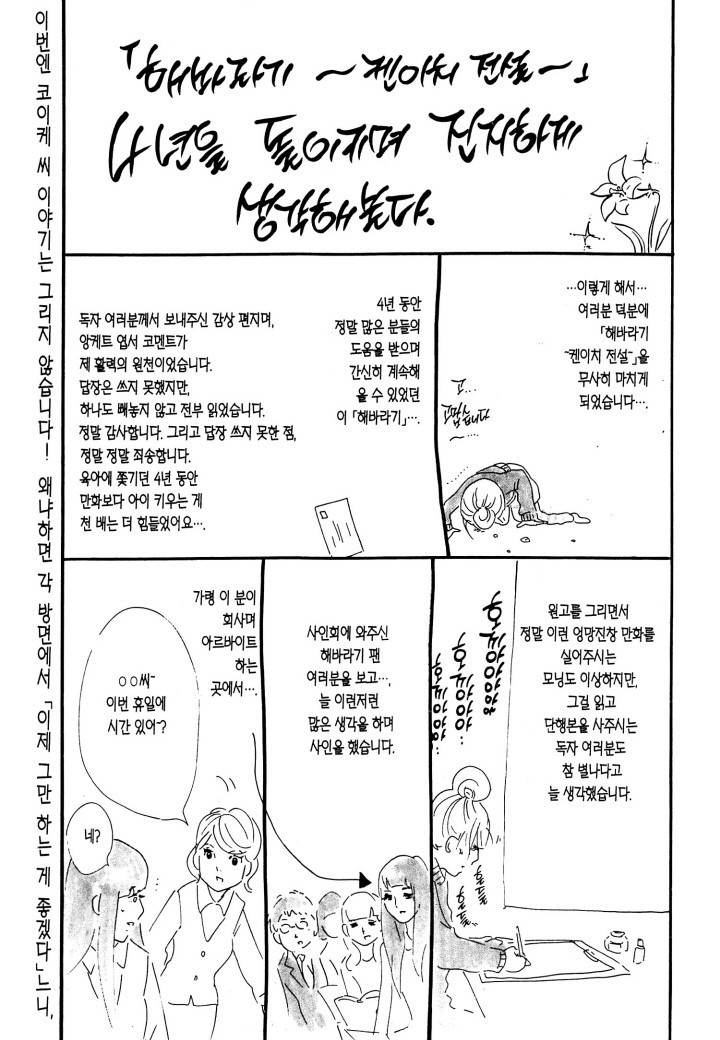 이번엔 코이케 씨 이야기는 그리지 않습니다! 왜냐하면 각 방면에서 「이제 그만 하는 게 좋겠다」느니,
「해바라기 ~켄이치 전설~」
4년을 돌이키며 진지하게
생각해봤다.
…이렇게 해서…
여러분 덕분에
「해바라기
~켄이치 전설~」을
무사히 마치게
되었습니다….
고…
고맙습니다
~……
4년 동안
정말 많은 분들의
도움을 받으며
간신히 계속해
올 수 있었던
이 「해바라기」….
독자 여러분께서 보내주신 감상 편지며,
앙케트 엽서 코멘트가
제 활력의 원천이었습니다.
답장은 쓰지 못했지만,
하나도 빼놓지 않고 전부 읽었습니다.
정말 감사합니다. 그리고 답장 쓰지 못한 점,
정말 정말 죄송합니다.
육아에 쫓기던 4년 동안
만화보다 아이 키우는 게
천 배는 더 힘들었어요….
원고를 그리면서
정말 이런 엉망진창 만화를
실어주시는
모닝도 이상하지만,
그걸 읽고
단행본을 사주시는
독자 여러분도
참 별나다고
늘 생각했습니다.
사인회에 와주신
해바라기 팬
여러분을 보고…,
늘 이런저런
많은 생각을 하며
사인을 했습니다.
가령 이 분이
회사며
아르바이트
하는
곳에서….
○○씨~
이번 휴일에
시간 있어~?
네?